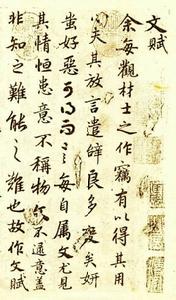 文賦
余每觀材士之作竊有以得其用
心夫其放言遣辭良多變矣妍
蚩好惡可得而言每自属文尤見
其情恒患意不稱物文不逮意盖
非知之難能之難也故作文賦